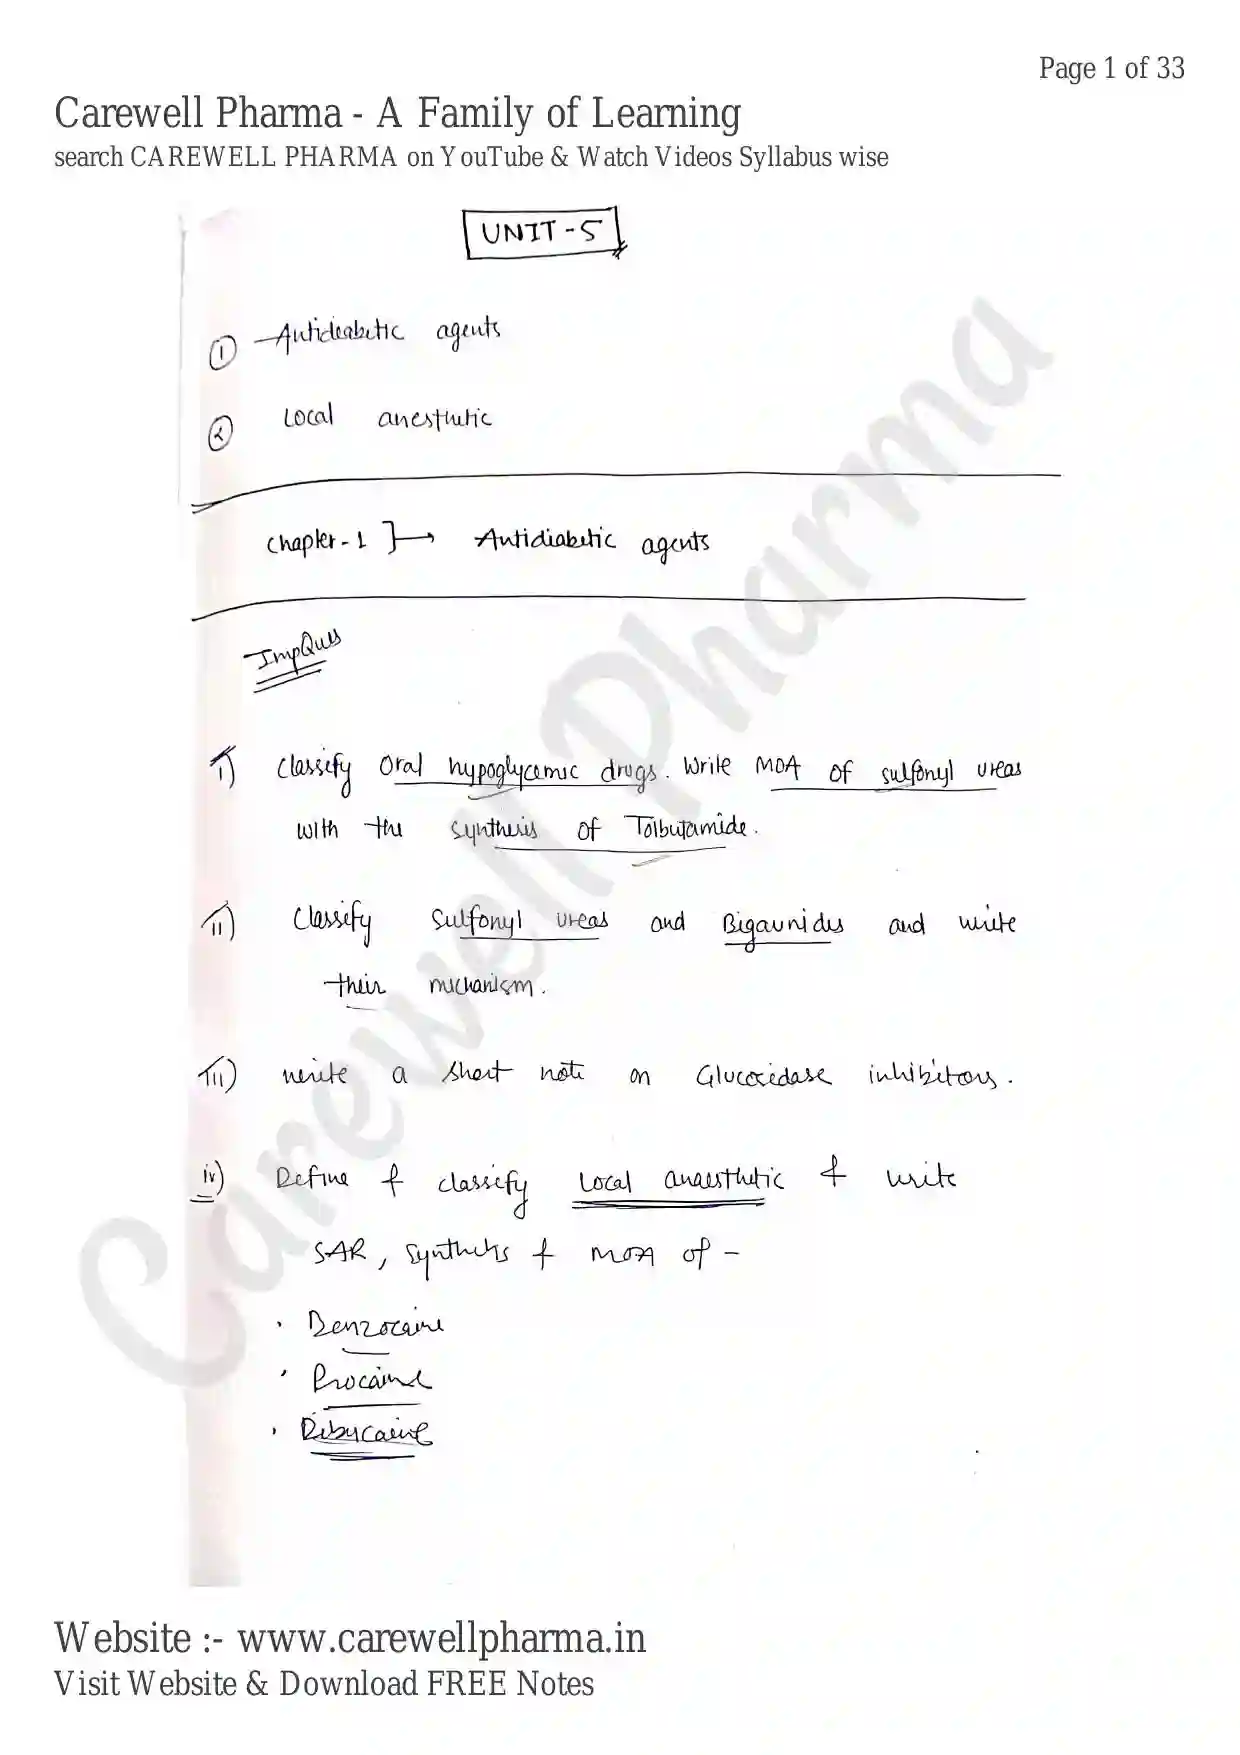 Page 1 of 33
Carewell Pharma - A Family of Learning
search CAREWELL PHARMA on YouTube & Watch Videos Syllabus wise
UNIT - 5
1 Antidiabetic agents
2 Local anesthetic
Chapter - 1 }→ Antidiabetic agents
Imp Ques
i) Classify Oral hypoglycemic drugs. Write MOA of sulfonyl ureas
with the synthesis of Tolbutamide.
ii) Classify Sulfonyl ureas and Bigaunides and write
their mechanism.
iii) write a short note on Glucosidase inhibitors.
iv) Define & classify Local anaesthetic & write
SAR, synthesis & MOA of -
• Benzocaine
• Procaine
• Dibucaine
Carewell Pharma
Website :- www.carewellpharma.in
Visit Website & Download FREE Notes